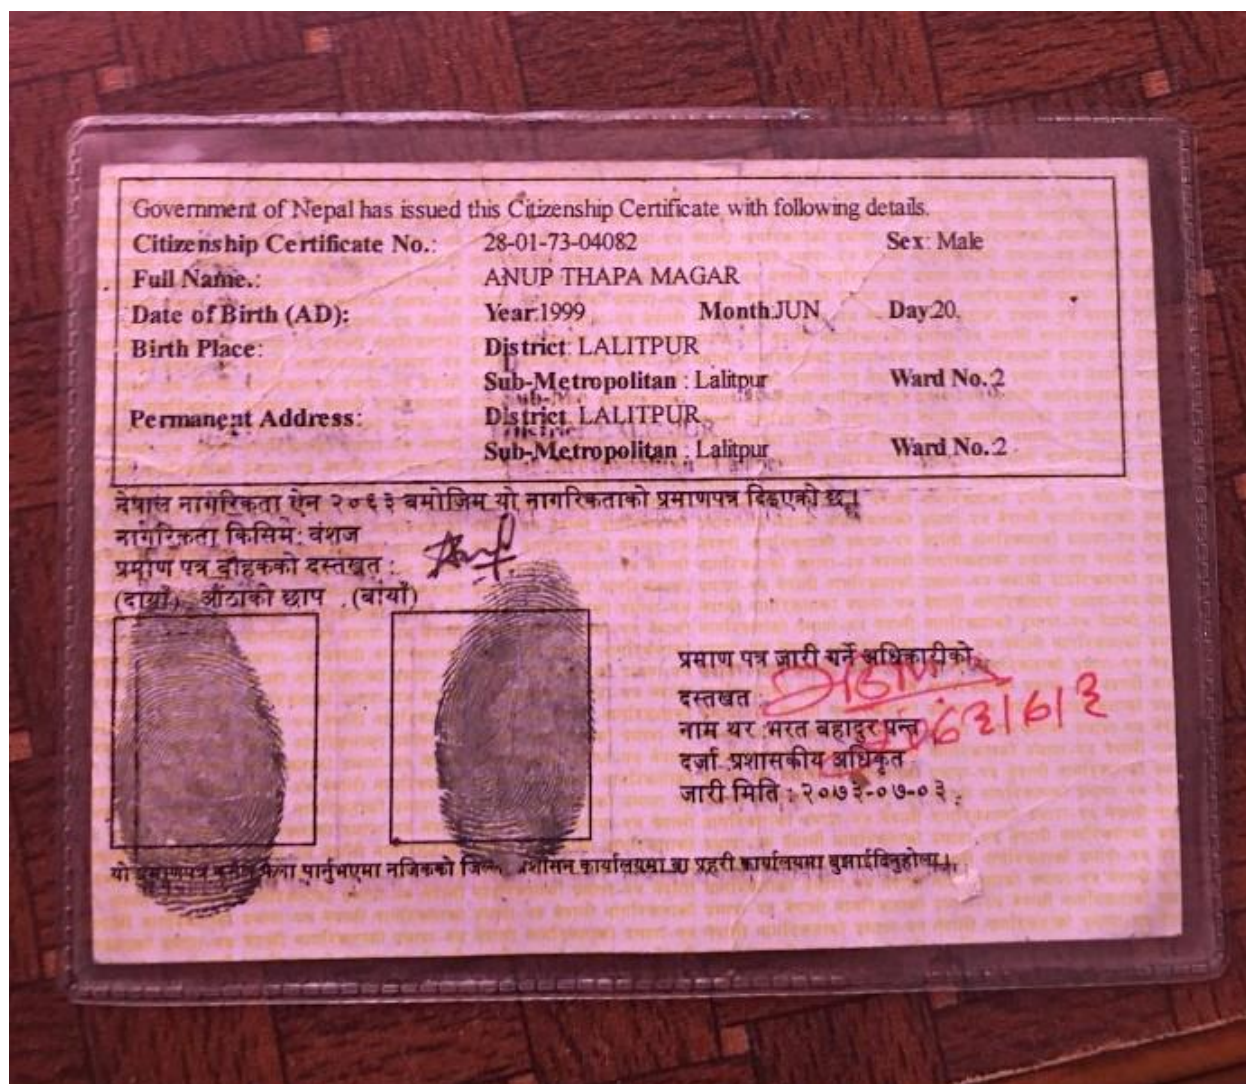 Government of Nepal has issued this Citizenship Certificate with following details.
Citizenship Certificate No.: 28-01-73-04082 Sex: Male
Full Name.: ANUP THAPA MAGAR
Date of Birth (AD): Year:1999 Month:JUN Day:20.
Birth Place: District: LALITPUR
Sub-Metropolitan : Lalitpur Ward No.:2
Permanent Address: District: LALITPUR
Sub-Metropolitan : Lalitpur Ward No.:2
नेपाल नागरिकता ऐन २०६३ बमोजिम यो नागरिकताको प्रमाणपत्र दिइएको छ।
नागरिकता किसिम: वंशज
प्रमाण पत्र बाहकको दस्तखत :
(दायाँ) औंठाको छाप (बायाँ)
प्रमाण पत्र जारी गर्ने अधिकारीको
दस्तखत :
नाम थर :भरत बहादुर पन्त
दर्जा :प्रशासकीय अधिकृत
जारी मिति : २०७३-०७-०३
यो पार्नुभएमा नजिकको कार्यालयमा वा प्रहरी कार्यालयमा बुझाईदिनुहोला।